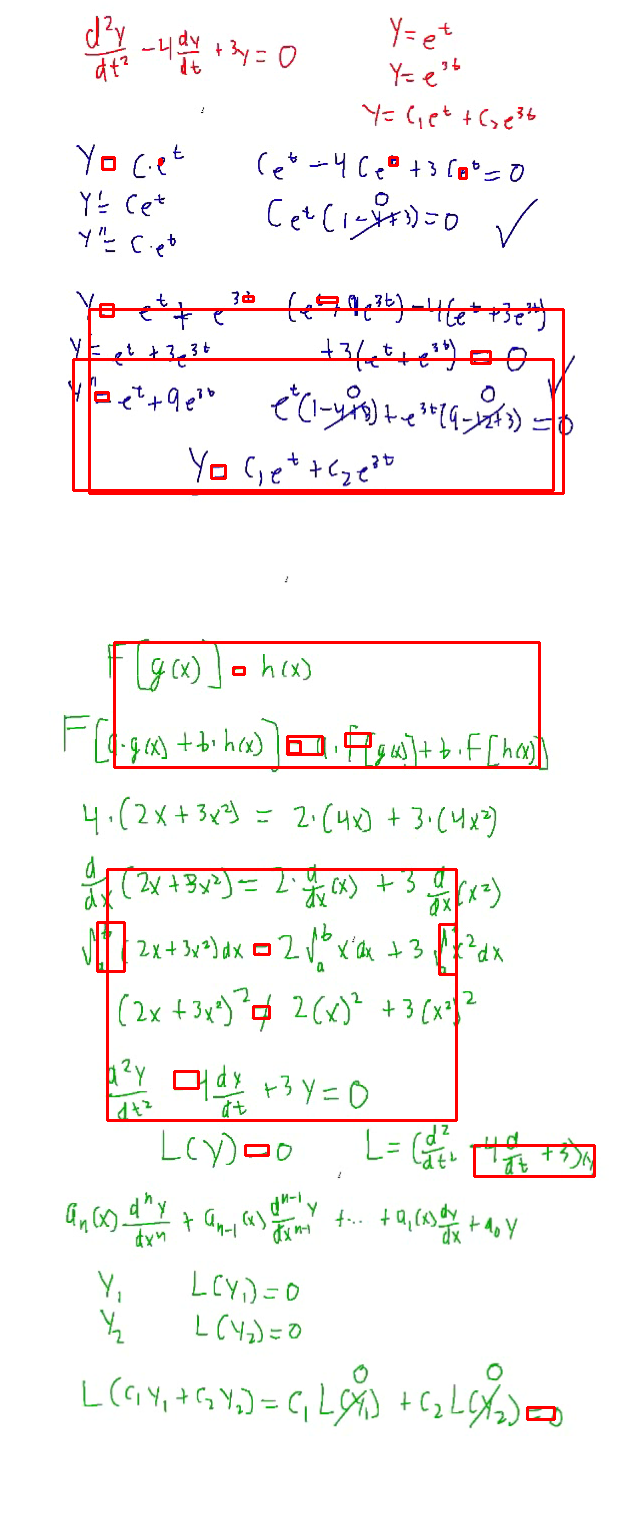 d²y/dt² - 4 dy/dt + 3y = 0
y = e^t
y = e^{3t}
y = c₁e^t + c₂e^{3t}
y = c·e^t
Ce^t - 4Ce^t + 3Ce^t = 0
y' = Ce^t
Ce^t(1-4+3) = 0 ✓
0
y'' = C·e^t
y = e^t + e^{3t}
(e^t + 9e^{3t}) - 4(e^t + 3e^{3t})
y' = e^t + 3e^{3t}
+3(e^t + e^{3t}) = 0 ✓
y'' = e^t + 9e^{3t}
0 0
e^t(1-4+3) + e^{3t}(9-12+3) = 0
y = c₁e^t + c₂e^{3t}
F[g(x)] = h(x)
F[a·g(x) + b·h(x)] = a·F[g(x)] + b·F[h(x)]
4·(2x+3x²) = 2·(4x) + 3·(4x²)
d/dx (2x+3x²) = 2·d/dx(x) + 3 d/dx(x²)
∫_a^b (2x+3x²)dx = 2∫_a^b x dx + 3∫_a^b x²dx
(2x+3x²)² ≠ 2(x)² + 3(x²)²
d²y/dt² - 4 dy/dt + 3y = 0
L(y) = 0
L = (d²/dt² - 4 d/dt + 3)y
aₙ(x) dⁿy/dxⁿ + aₙ₋₁(x) dⁿ⁻¹y/dxⁿ⁻¹ + ... + a₁(x) dy/dx + a₀y
y₁ L(y₁) = 0
y₂ L(y₂) = 0
0 0
L(c₁y₁ + c₂y₂) = c₁L(y₁) + c₂L(y₂) = 0